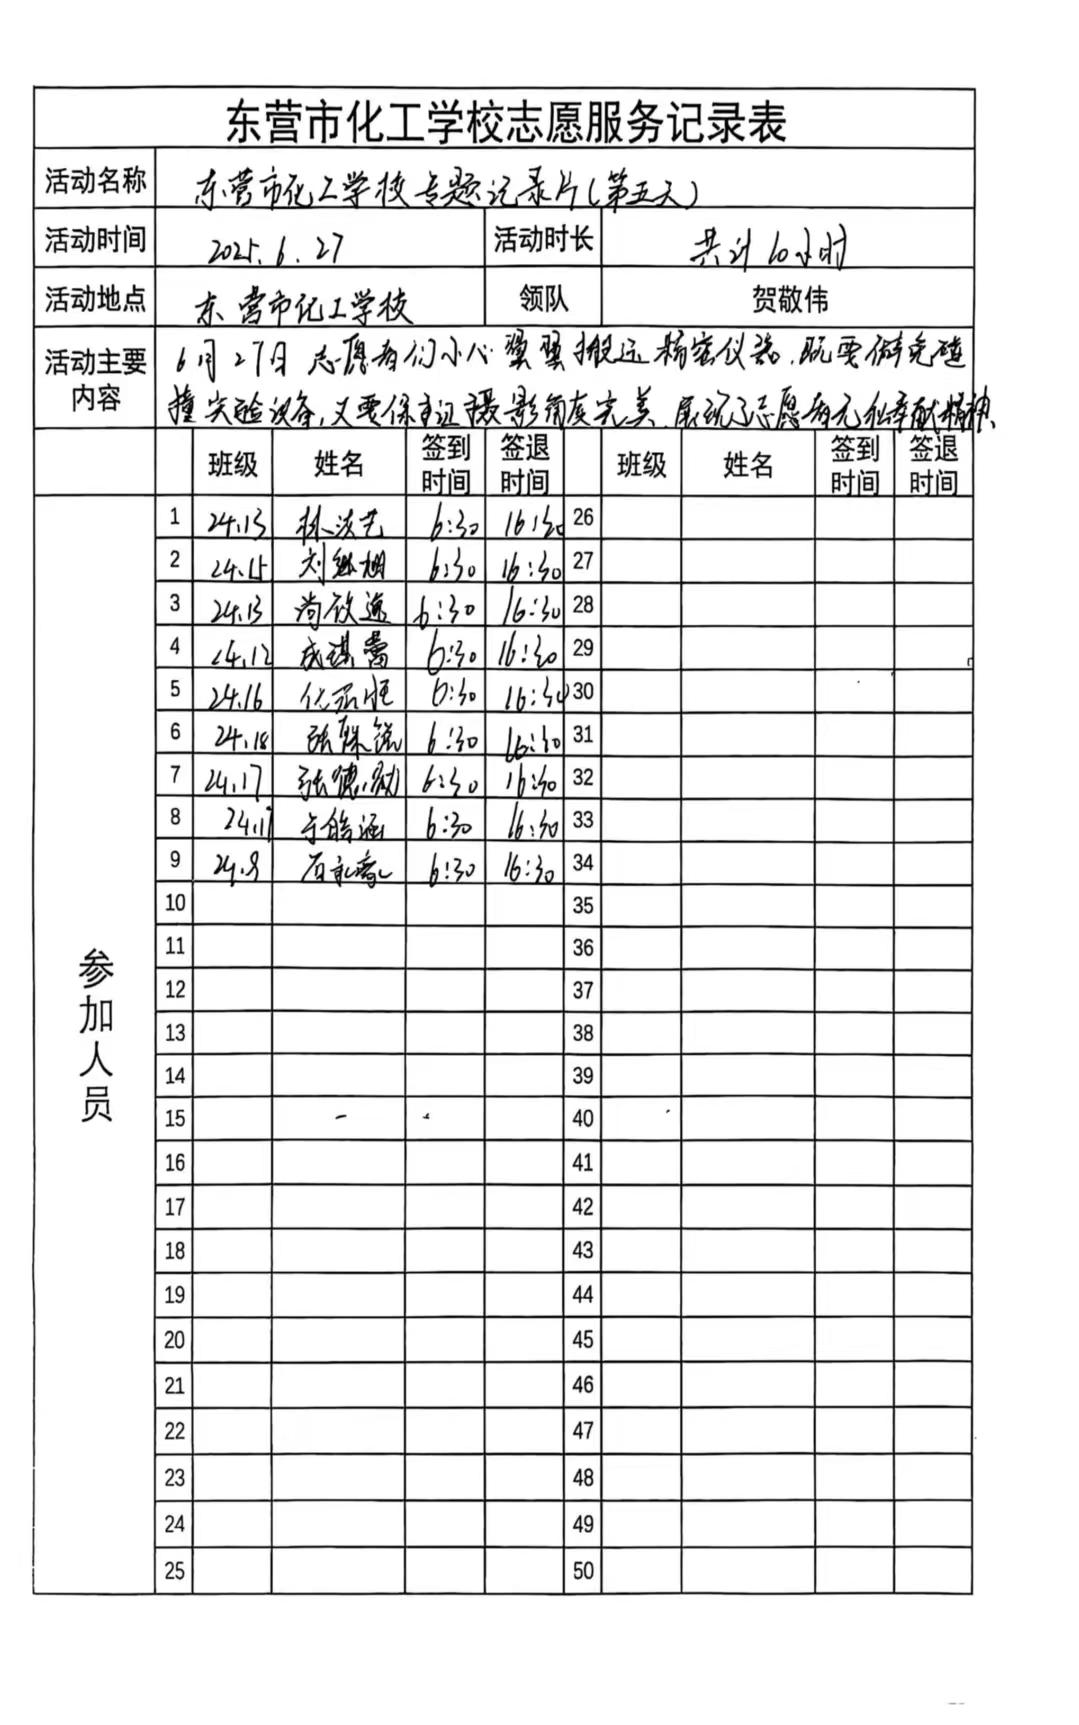 东营市化工学校志愿服务记录表
活动名称 东营市化工学校专题记录片(第五天)
活动时间 2025.6.27 活动时长 共计10小时
活动地点 东营市化工学校 领队 贺敬伟
活动主要内容 6月27日志愿者们小心翼翼搬运精密仪器,既要避免碰
撞实验设备,又要保证摄影角度完美,展现了志愿者无私奉献精神、
班级 姓名 签到时间 签退时间 班级 姓名 签到时间 签退时间
参加人员
1 24.13 林 艺 6:30 16:30 26
2 24.15 刘 6:30 16:30 27
3 24.13 尚欣 6:30 16:30 28
4 24.12 成 6:30 16:30 29
5 24.16 6:30 16:30 30
6 24.18 张 6:30 16:30 31
7 24.17 张德 6:30 16:30 32
8 24.17 皓涵 6:30 16:30 33
9 24.9 石 6:30 16:30 34
10 35
11 36
12 37
13 38
14 39
15 40
16 41
17 42
18 43
19 44
20 45
21 46
22 47
23 48
24 49
25 50